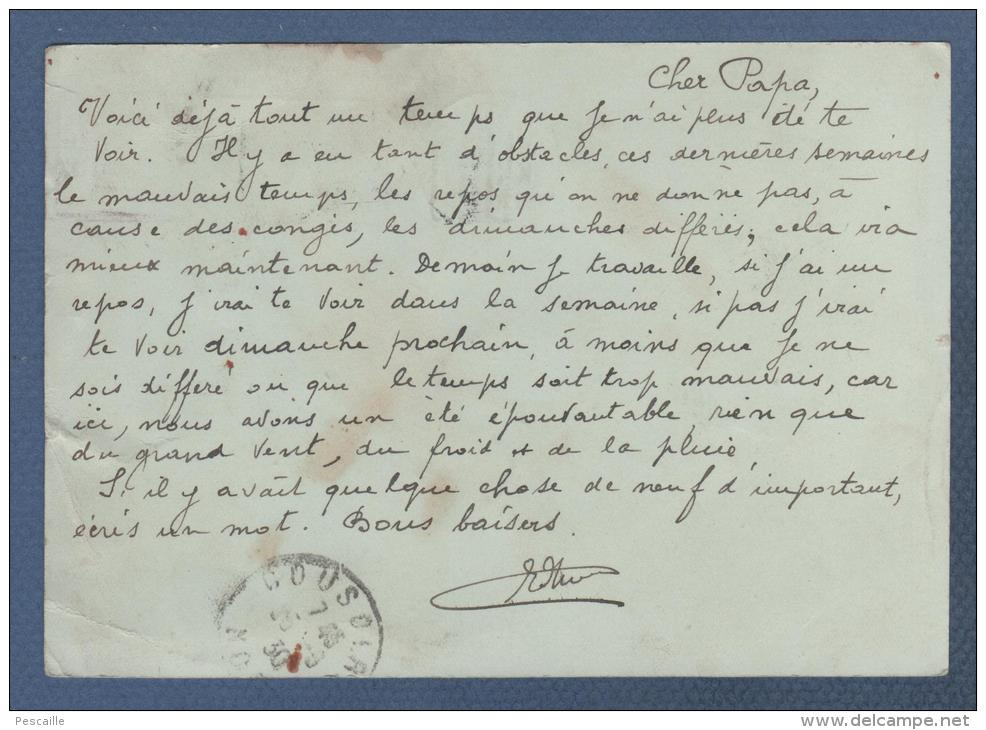 Cher Papa,
Voici déjà tout un temps que je n'ai plus été te
voir. Il y a eu tant d'obstacles, ces dernières semaines
le mauvais temps, les repos qu'on ne donne pas, à
cause des congés, les dimanches différés, cela ira
mieux maintenant. Demain je travaille, si j'ai un
repos, j'irai te voir dans la semaine, si pas j'irai
te voir dimanche prochain, à moins que je ne
sois différé ou que le temps soit trop mauvais, car
ici, nous avons un été épouvantable, rien que
du grand vent, du froid et de la pluie
S'il y avait quelque chose de neuf d'important,
écris un mot. Bons baisers.
COUSOLR
7 45
30
Pescaille
http://www.delcampe.net